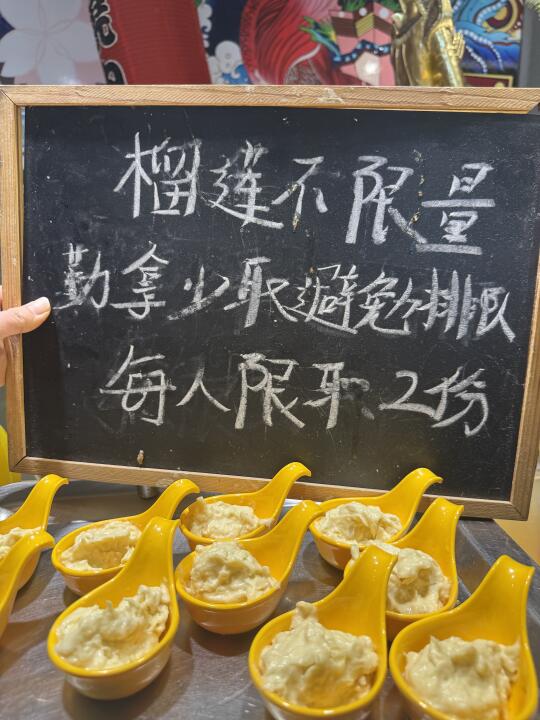 榴莲不限量
勤拿少取避免排队
每人限取2份